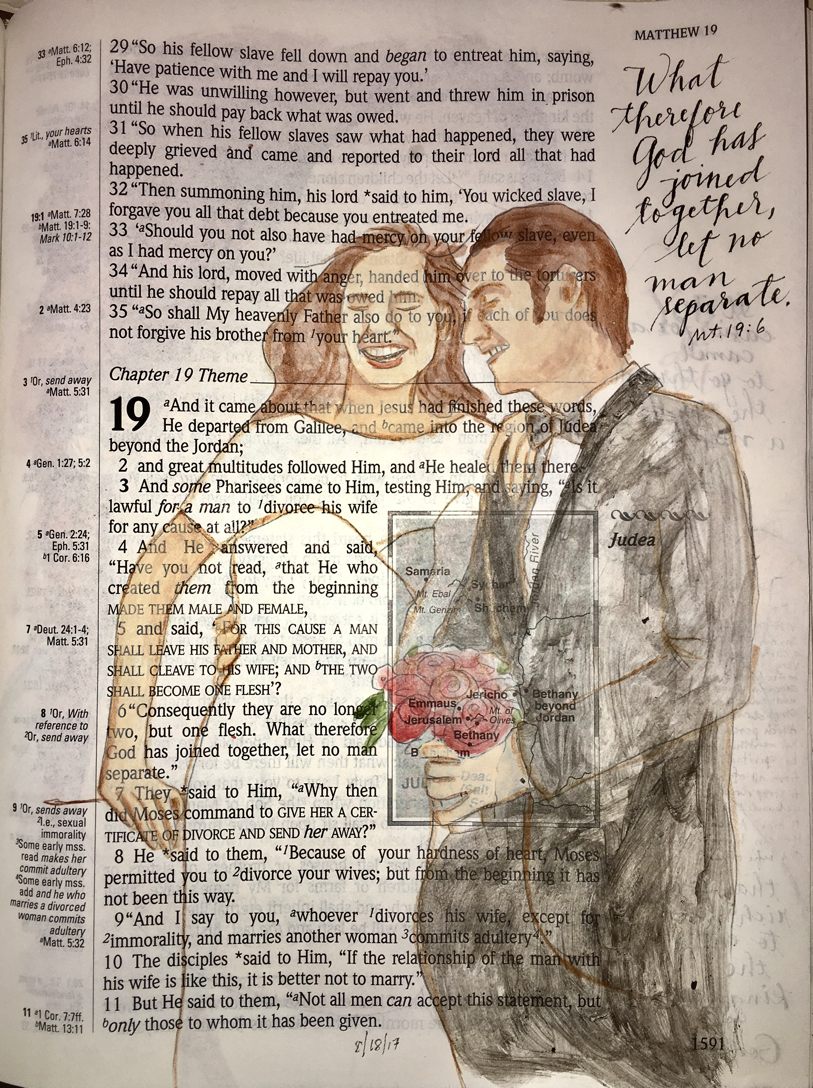 MATTHEW 19
33 ᵃMatt. 6:12;
Eph. 4:32
35 ¹Lit., your hearts
ᵃMatt. 6:14
19:1 ᵃMatt. 7:28
ᵇMatt. 19:1-9;
Mark 10:1-12
2 ᵃMatt. 4:23
3 ¹Or, send away
ᵃMatt. 5:31
4 ᵃGen. 1:27; 5:2
5 ᵃGen. 2:24;
Eph. 5:31
ᵇ1 Cor. 6:16
7 ᵃDeut. 24:1-4;
Matt. 5:31
8 ¹Or, With
reference to
²Or, send away
9 ¹Or, sends away
²I.e., sexual
immorality
³Some early mss.
read makes her
commit adultery
⁴Some early mss.
add and he who
marries a divorced
woman commits
adultery
ᵃMatt. 5:32
11 ᵃ1 Cor. 7:7ff.
ᵇMatt. 13:11
29 “So his fellow slave fell down and began to entreat him, saying,
‘Have patience with me and I will repay you.’
30 “He was unwilling however, but went and threw him in prison
until he should pay back what was owed.
31 “So when his fellow slaves saw what had happened, they were
deeply grieved and came and reported to their lord all that had
happened.
32 “Then summoning him, his lord *said to him, ‘You wicked slave, I
forgave you all that debt because you entreated me.
33 ‘ᵃShould you not also have had mercy on your fellow slave, even
as I had mercy on you?’
34 “And his lord, moved with anger, handed him over to the torturers
until he should repay all that was owed him.
35 “ᵃSo shall My heavenly Father also do to you, if each of you does
not forgive his brother from ¹your heart.”
Chapter 19 Theme
19 ᵃAnd it came about that when Jesus had finished these words,
He departed from Galilee, and ᵇcame into the region of Judea
beyond the Jordan;
2 and great multitudes followed Him, and ᵃHe healed them there.
3 And some Pharisees came to Him, testing Him, and saying, “ᵃIs it
lawful for a man to ¹divorce his wife
for any cause at all?”
4 And He answered and said,
“Have you not read, ᵃthat He who
created them from the beginning
MADE THEM MALE AND FEMALE,
5 and said, ‘ᵃFOR THIS CAUSE A MAN
SHALL LEAVE HIS FATHER AND MOTHER, AND
SHALL CLEAVE TO HIS WIFE; AND ᵇTHE TWO
SHALL BECOME ONE FLESH’?
6 “Consequently they are no longer
two, but one flesh. What therefore
God has joined together, let no man
separate.”
7 They *said to Him, “ᵃWhy then
did Moses command to GIVE HER A CER-
TIFICATE OF DIVORCE AND SEND her AWAY?”
8 He *said to them, “¹Because of your hardness of heart, Moses
permitted you to ²divorce your wives; but from the beginning it has
not been this way.
9 “And I say to you, ᵃwhoever ¹divorces his wife, except for
²immorality, and marries another woman ³commits adultery⁴.”
10 The disciples *said to Him, “If the relationship of the man with
his wife is like this, it is better not to marry.”
11 But He said to them, “ᵃNot all men can accept this statement, but
ᵇonly those to whom it has been given.
Judea
Jordan River
Samaria
Sychar
Mt. Ebal
Mt. Gerizim
Shechem
Jericho
Bethany
beyond
Jordan
Emmaus
Mt. of
Olives
Jerusalem
Bethany
What
therefore
God has
joined
together,
let no
man
separate.
Mt. 19:6
8/18/17
1591